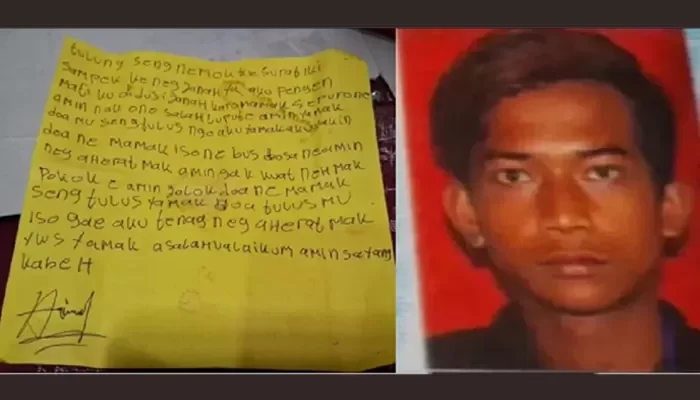 tulung seng nemokne surat iki
sampek ke neg janah ya aku pengen
mati ku didusi janah karo mamak sepurone
amin nak one salah lupute amin ya mak
doa mu seng tulus nggo aku ya mak aku yakin
doa ne mamak iso ne bus dosa ne amin
neg aherat mak amin gak kuat neh mak
Pokok e amin jalok doa ne mamak
seng tulus ya mak doa tulus mu
iso gae aku tenag neg aherat mak
yws ya mak asalamualaikum amin sayang
kabeh